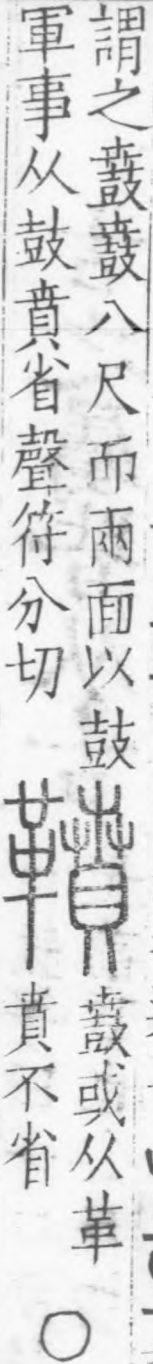 謂之鼖鼖八尺而兩面以鼓
軍事从鼓賁省聲符分切
鼖或从革
賁不省
○